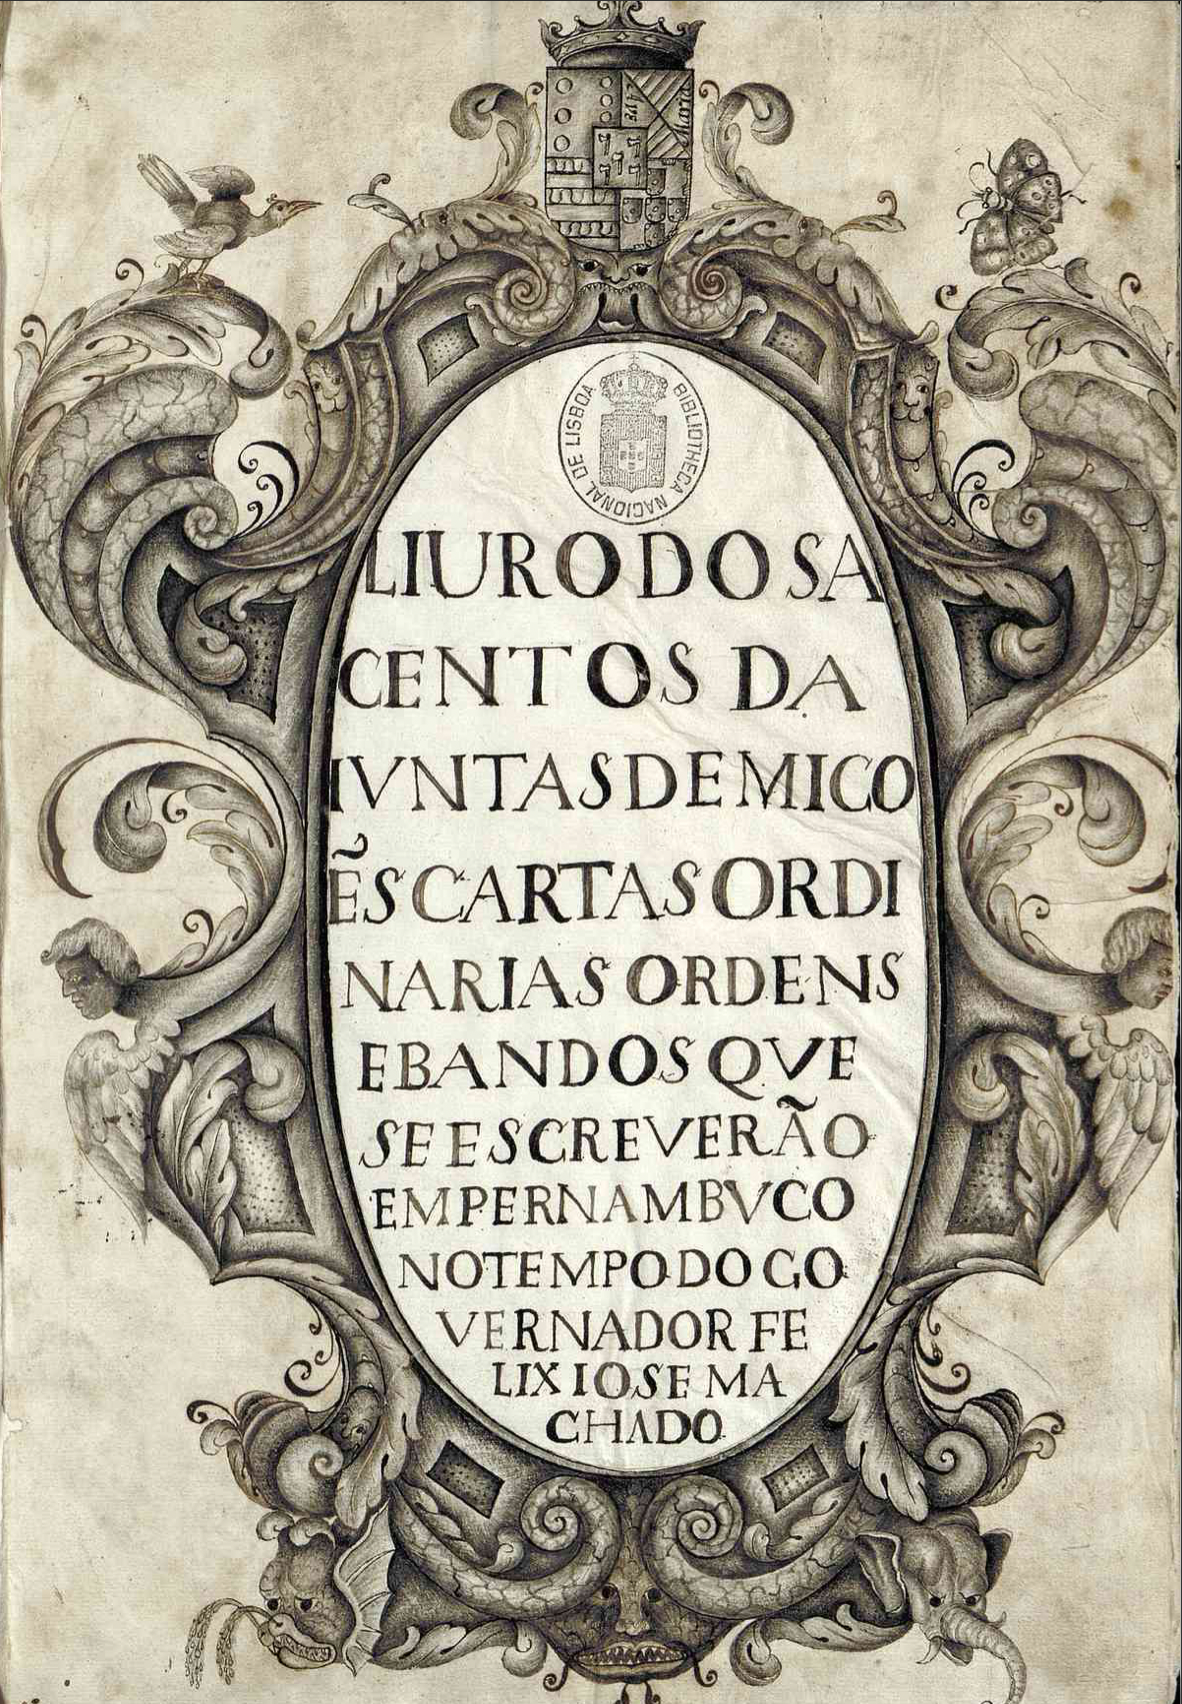 AVE
Maria
BIBLIOTHECA NACIONAL DE LISBOA
LIURO DOS A
CENTOS DA
IVNTAS DE MICO
ẼS CARTAS ORDI
NARIAS ORDENS
E BANDOS QVE
SE ESCREVERÃO
EM PERNAMBVCO
NO TEMPO DO GO
VERNADOR FE
LIX IOSE MA
CHADO